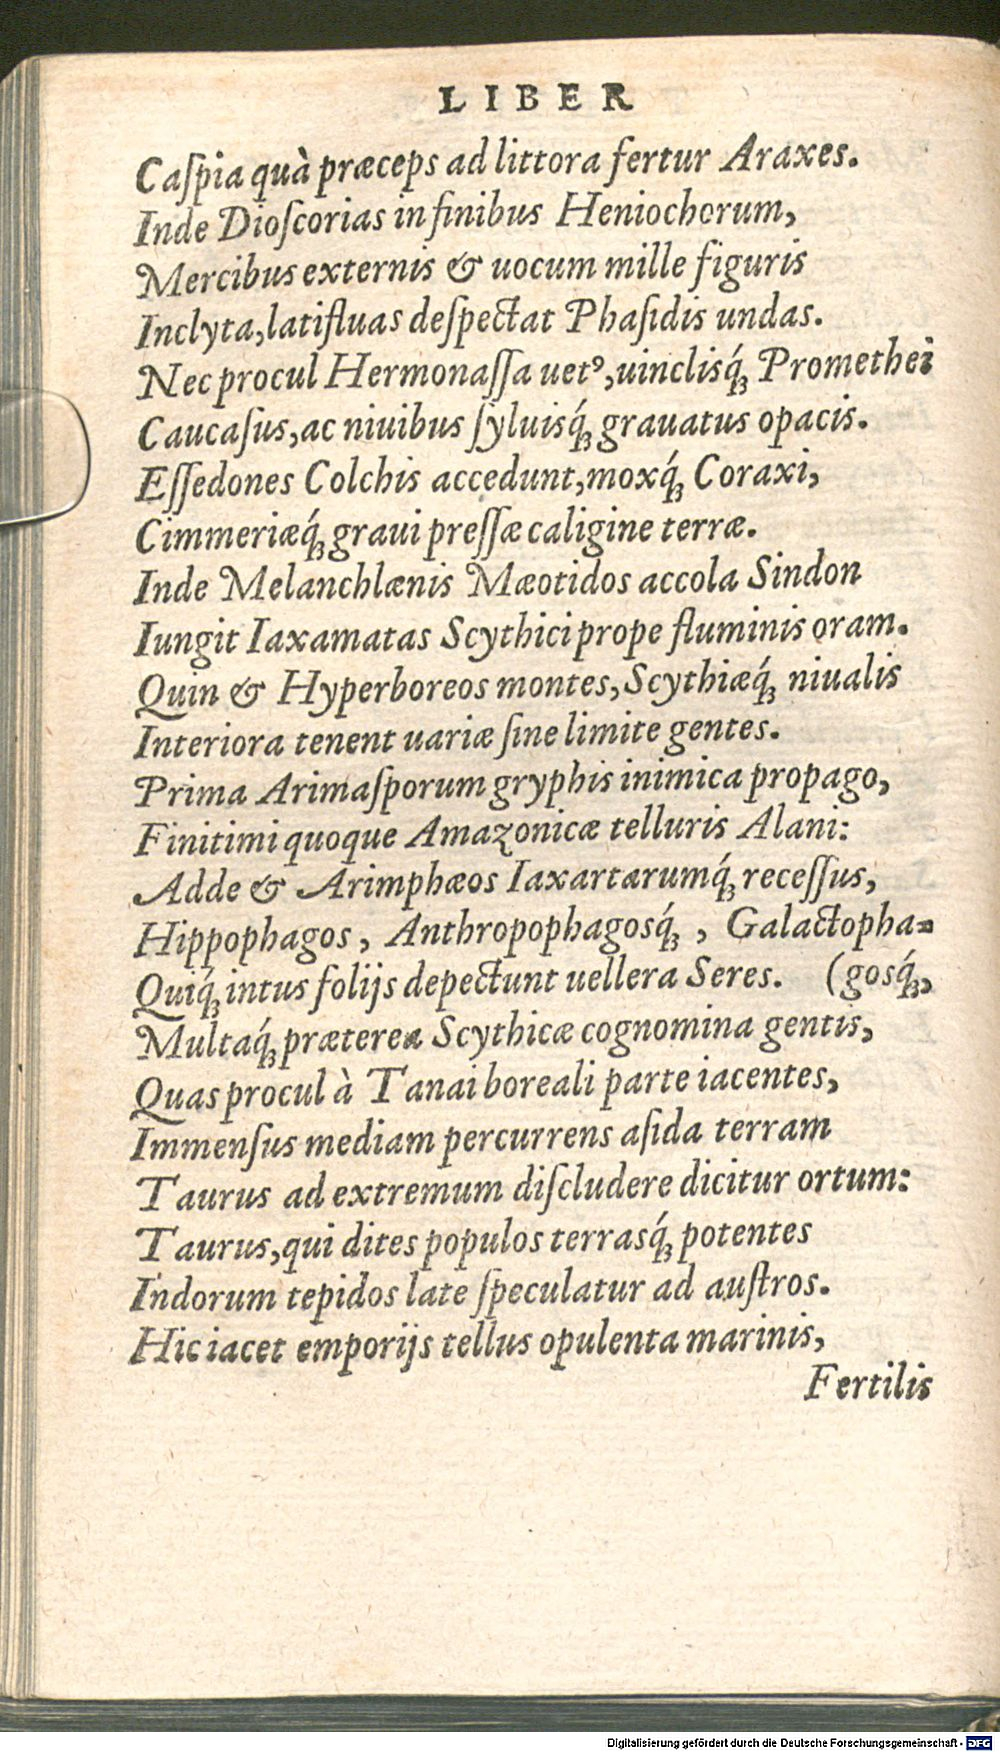 LIBER
Caſpia quà præceps ad littora fertur Araxes.
Inde Dioſcorias in finibus Heniochorum,
Mercibus externis & uocum mille figuris
Inclyta, latifluas deſpectat Phaſidis undas.
Nec procul Hermonaſſa uetꝰ, uinclisq́; Promethei
Caucaſus, ac niuibus ſyluisq́; grauatus opacis.
Eſſedones Colchis accedunt, moxq́; Coraxi,
Cimmeriæq́; graui preſſæ caligine terræ.
Inde Melanchlænis Mæotidos accola Sindon
Iungit Iaxamatas Scythici prope fluminis oram.
Quin & Hyperboreos montes, Scythiæq́; niualis
Interiora tenent uariæ ſine limite gentes.
Prima Arimaſporum gryphis inimica propago,
Finitimi quoque Amazonicæ telluris Alani:
Adde & Arimphæos Iaxartarumq́; receſſus,
Hippophagos, Anthropophagosq́;, Galactopha-
Quiq́; intus folijs depectunt uellera Seres. (gosq́;,
Multaq́; præterea Scythicæ cognomina gentis,
Quas procul à Tanai boreali parte iacentes,
Immenſus mediam percurrens aſida terram
Taurus ad extremum diſcludere dicitur ortum:
Taurus, qui dites populos terrasq́; potentes
Indorum tepidos late ſpeculatur ad auſtros.
Hic iacet emporijs tellus opulenta marinis,
Fertilis
Digitalisierung gefördert durch die Deutsche Forschungsgemeinschaft - DFG